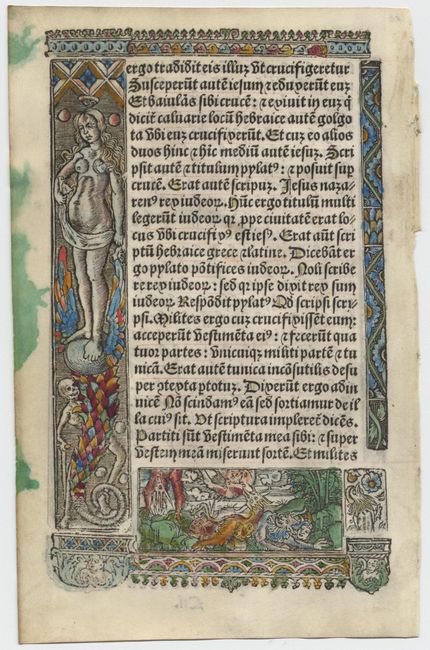 ergo tradidit eis illuz vt crucifigeretur
Susceperūt autē iesum ⁊ eduxerūt euz
Et baiulās sibi crucē: ⁊ exiuit in euz q̄
dicit̄ caluarie locū hebraice autē golgo
ta vbi euz crucifixerūt. Et cuz eo alios
duos hinc ⁊ hic mediū autē iesuz. Scri
psit autē ⁊ titulum pylatꝰ: ⁊ posuit sup
crucē. Erat autē scriptuz. Jesus naza-
renꝰ rex iudeoꝝ. Hūc ergo titulū multi
legerūt iudeoꝝ qꝛ ꝓpe ciuitatē erat lo-
cus vbi crucifixꝰ est iesꝰ. Erat aūt scri
ptū hebraice grece ⁊ latine. Dicebāt er
go pylato pōtifices iudeoꝝ. Noli scribe
re rex iudeoꝝ: sed qꝛ ipse dixit rex sum
iudeoꝝ Respōdit pylatꝰ Qd̄ scripsi scri-
psi. Milites ergo cuz crucifixissēt eum:
acceperūt vestimēta eiꝰ: ⁊ fecerūt qua
tuor partes: vnicuiqꝫ militi partē ⁊ tu
nicā. Erat autē tunica incōsutilis desu
per ꝯtexta ꝑ totuz. Dixerūt ergo ad in
uicē Nō scindamꝰ eā sed sortiamur de il
la cuiꝰ sit. Vt scriptura impleret̄ dicēs.
Partiti sūt vestimēta mea sibi: ⁊ super
vestem meā miserunt sortē. Et milites